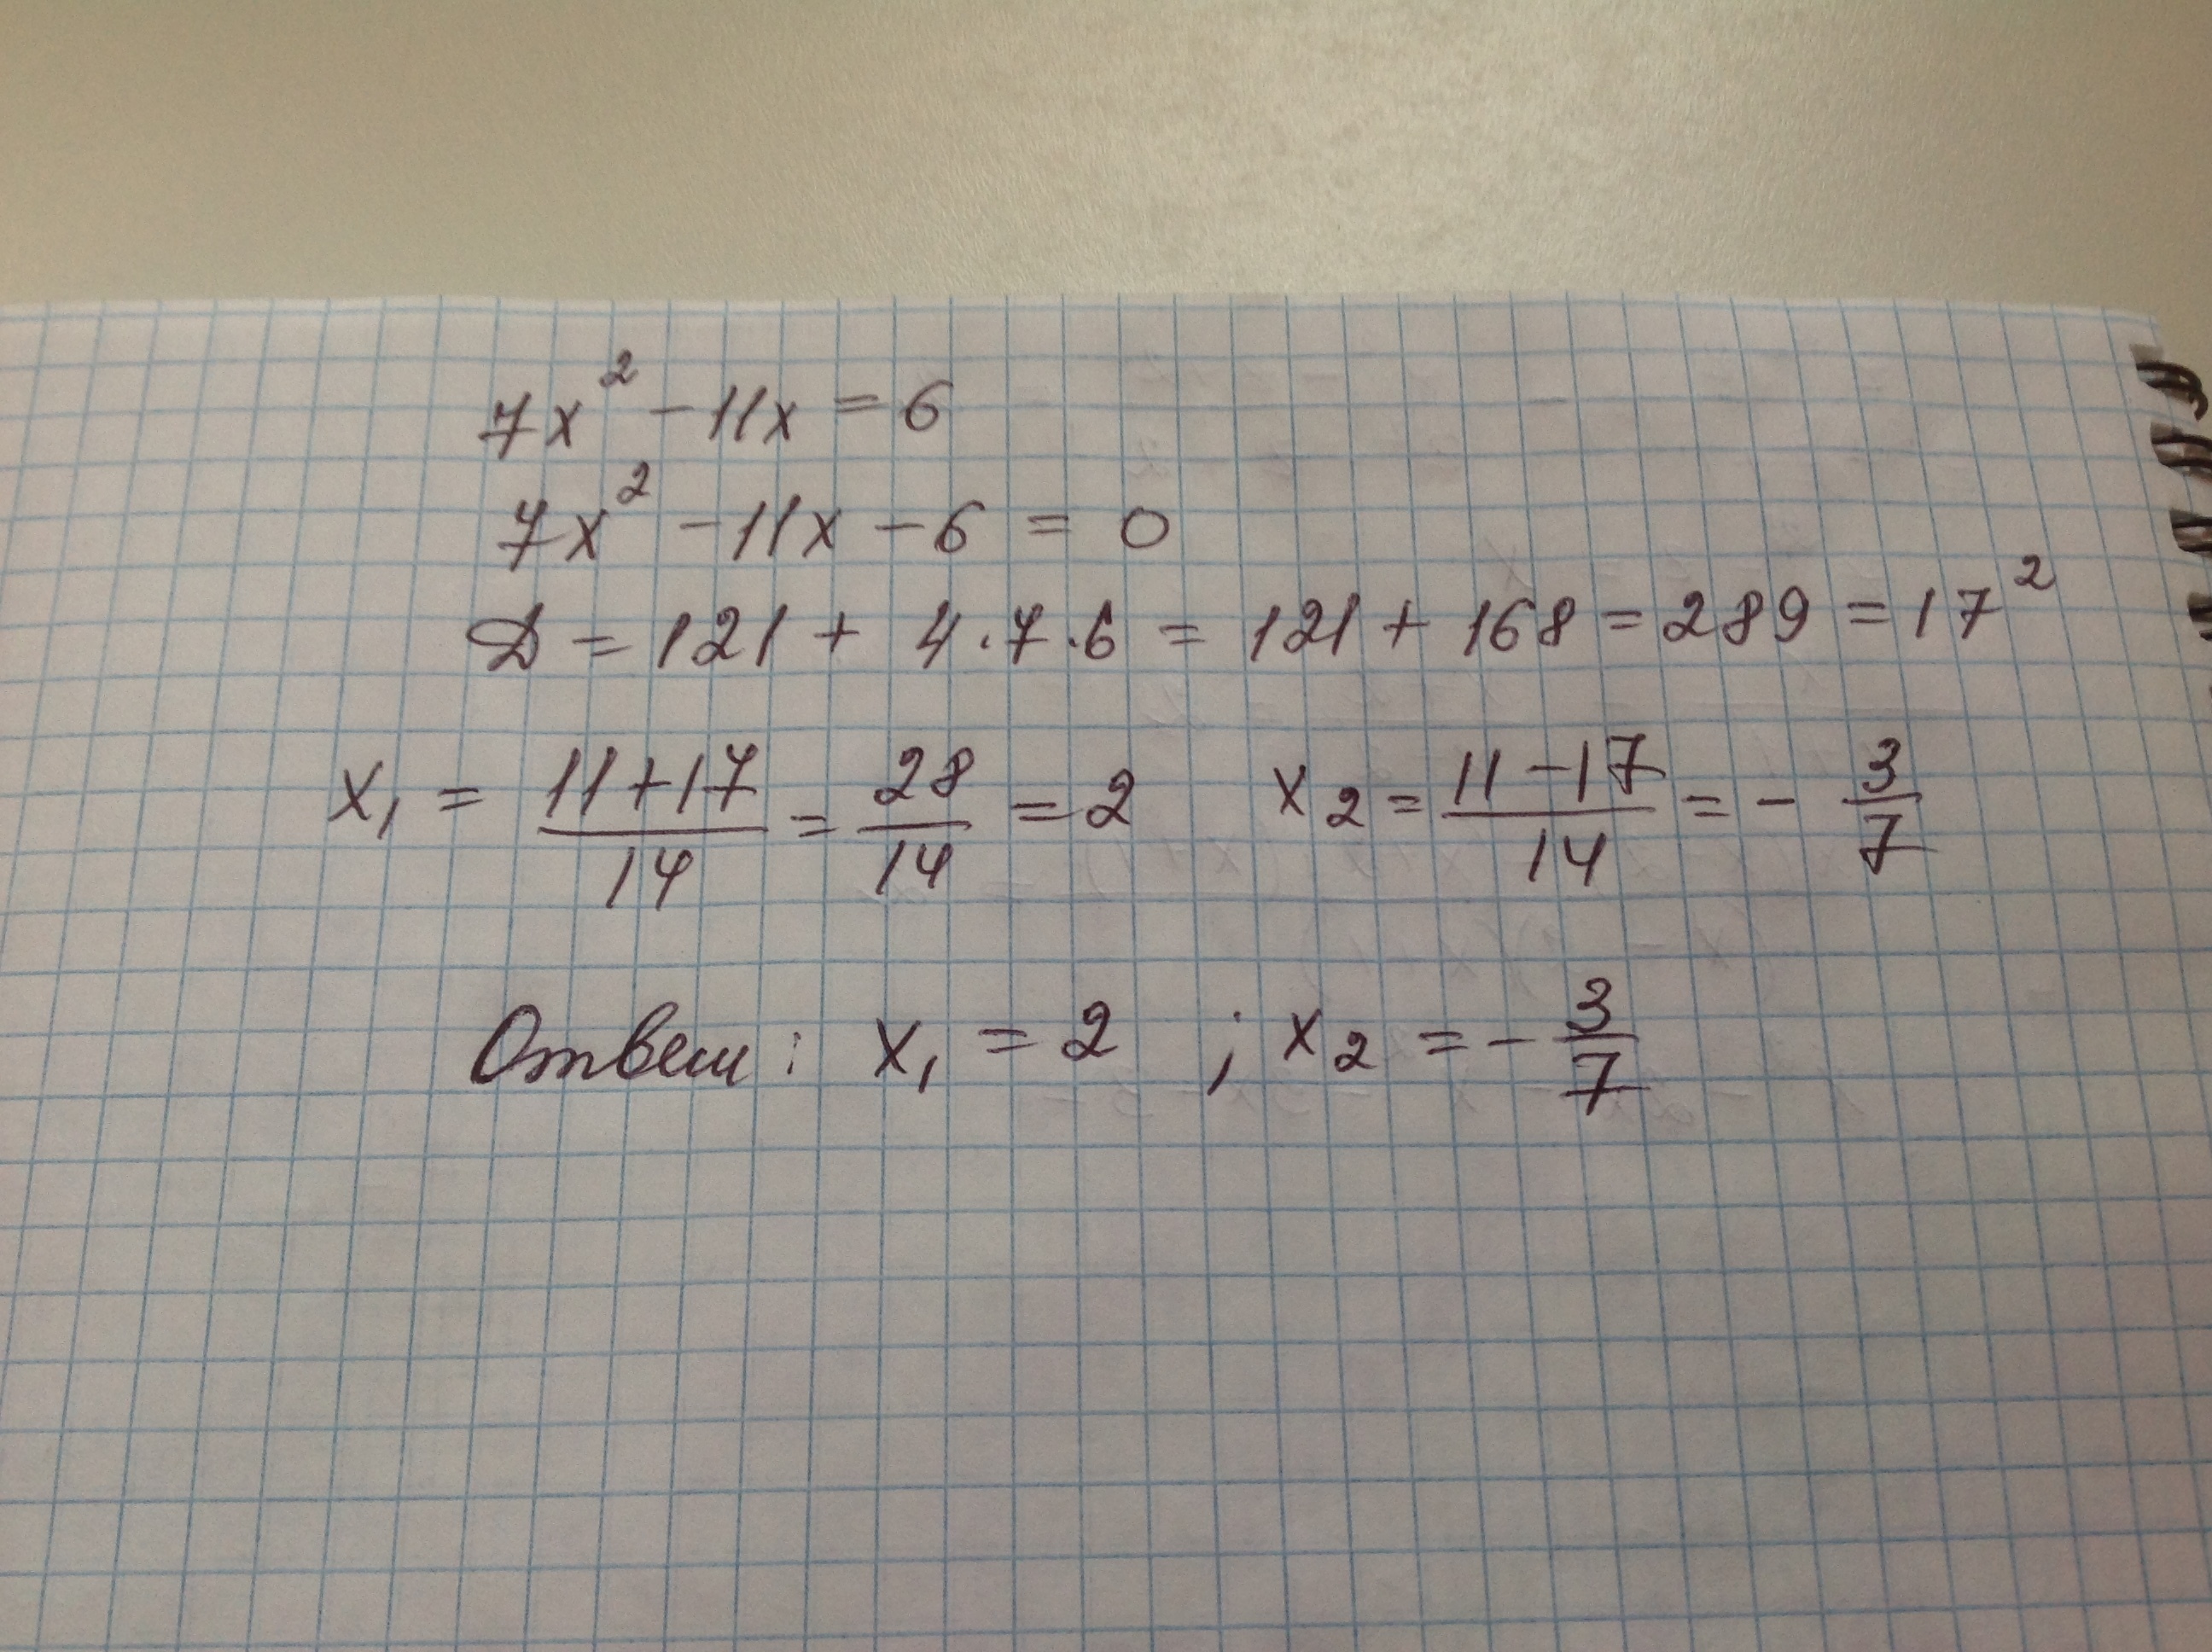 7x² - 11x = 6
7x² - 11x - 6 = 0
Д = 121 + 4·7·6 = 121 + 168 = 289 = 17²
x₁ = (11+17)/14 = 28/14 = 2 x₂ = (11-17)/14 = - 3/7
Ответ: x₁ = 2 ; x₂ = - 3/7